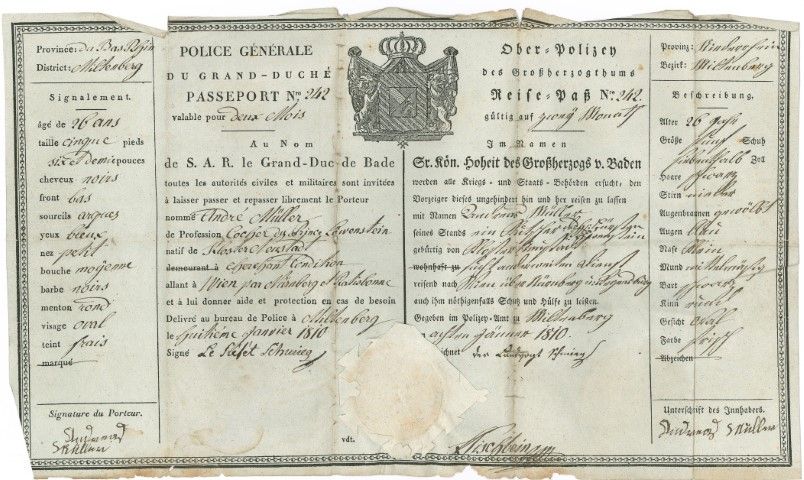 Province: du Bas Rhin
District: Miltenberg
Signalement.
âgé de 26 ans
taille cinque pieds
six et demie pouces
cheveux noirs
front bas
sourcils arques
yeux bleux
nez petit
bouche moÿenne
barbe noirs
menton rond
visage oval
teint frais
marqué
Signature du Porteur.
Andread
Müller
POLICE GÉNÉRALE
DU GRAND-DUCHÉ
PASSEPORT Nro. 242
valable pour deux Mois
Au Nom
de S. A. R. le Grand-Duc de Bade
toutes les autorités civiles et militaires sont invitées
à laisser passer et repasser librement le Porteur
nommé André Müller
de Profession Cocher du prince Löwenstein
natif de Klosterneustadt
demeurant à cherchant Condition
allant à Wien par Nürnberg et Ratisbonne
et à lui donner aide et protection en cas de besoin
Delivré au bureau de Police à Miltenberg
le huitième janvier 1810
Signé Le Préfet
vdt.
Ober-Polizey
des Großherzogthums
Reise-Paß Nro. 242.
gültig auf zwey Monath
Im Namen
Sr. Kön. Hoheit des Großherzogs v. Baden
werden alle Kriegs- und Staats-Behörden ersucht, den
Vorzeiger dieses ungehindert hin und her reisen zu lassen
mit Namen Andreas Müller
seines Stands ein Kutscher
gebürtig von
wohnhaft zu
reisend nach Wien über Nürnberg
auch ihm nöthigenfalls Schutz und Hülfe zu leisten.
Gegeben im Polizey-Amt zu Miltenberg
achten Jänner 1810.
der Landvogt
Provinz:
Bezirk: Miltenberg
Beschreibung.
Alter 26 Jahr
Größe fünf Schuh
siebenthalb Zoll
Haare schwarz
Stirn nieder
Augenbraunen gewölbt
Augen blau
Nase klein
Mund mittelmäßig
Bart schwarz
Kinn rund
Gesicht oval
Farbe frisch
Abzeichen
Unterschrift des Innhabers.
Andread Müller